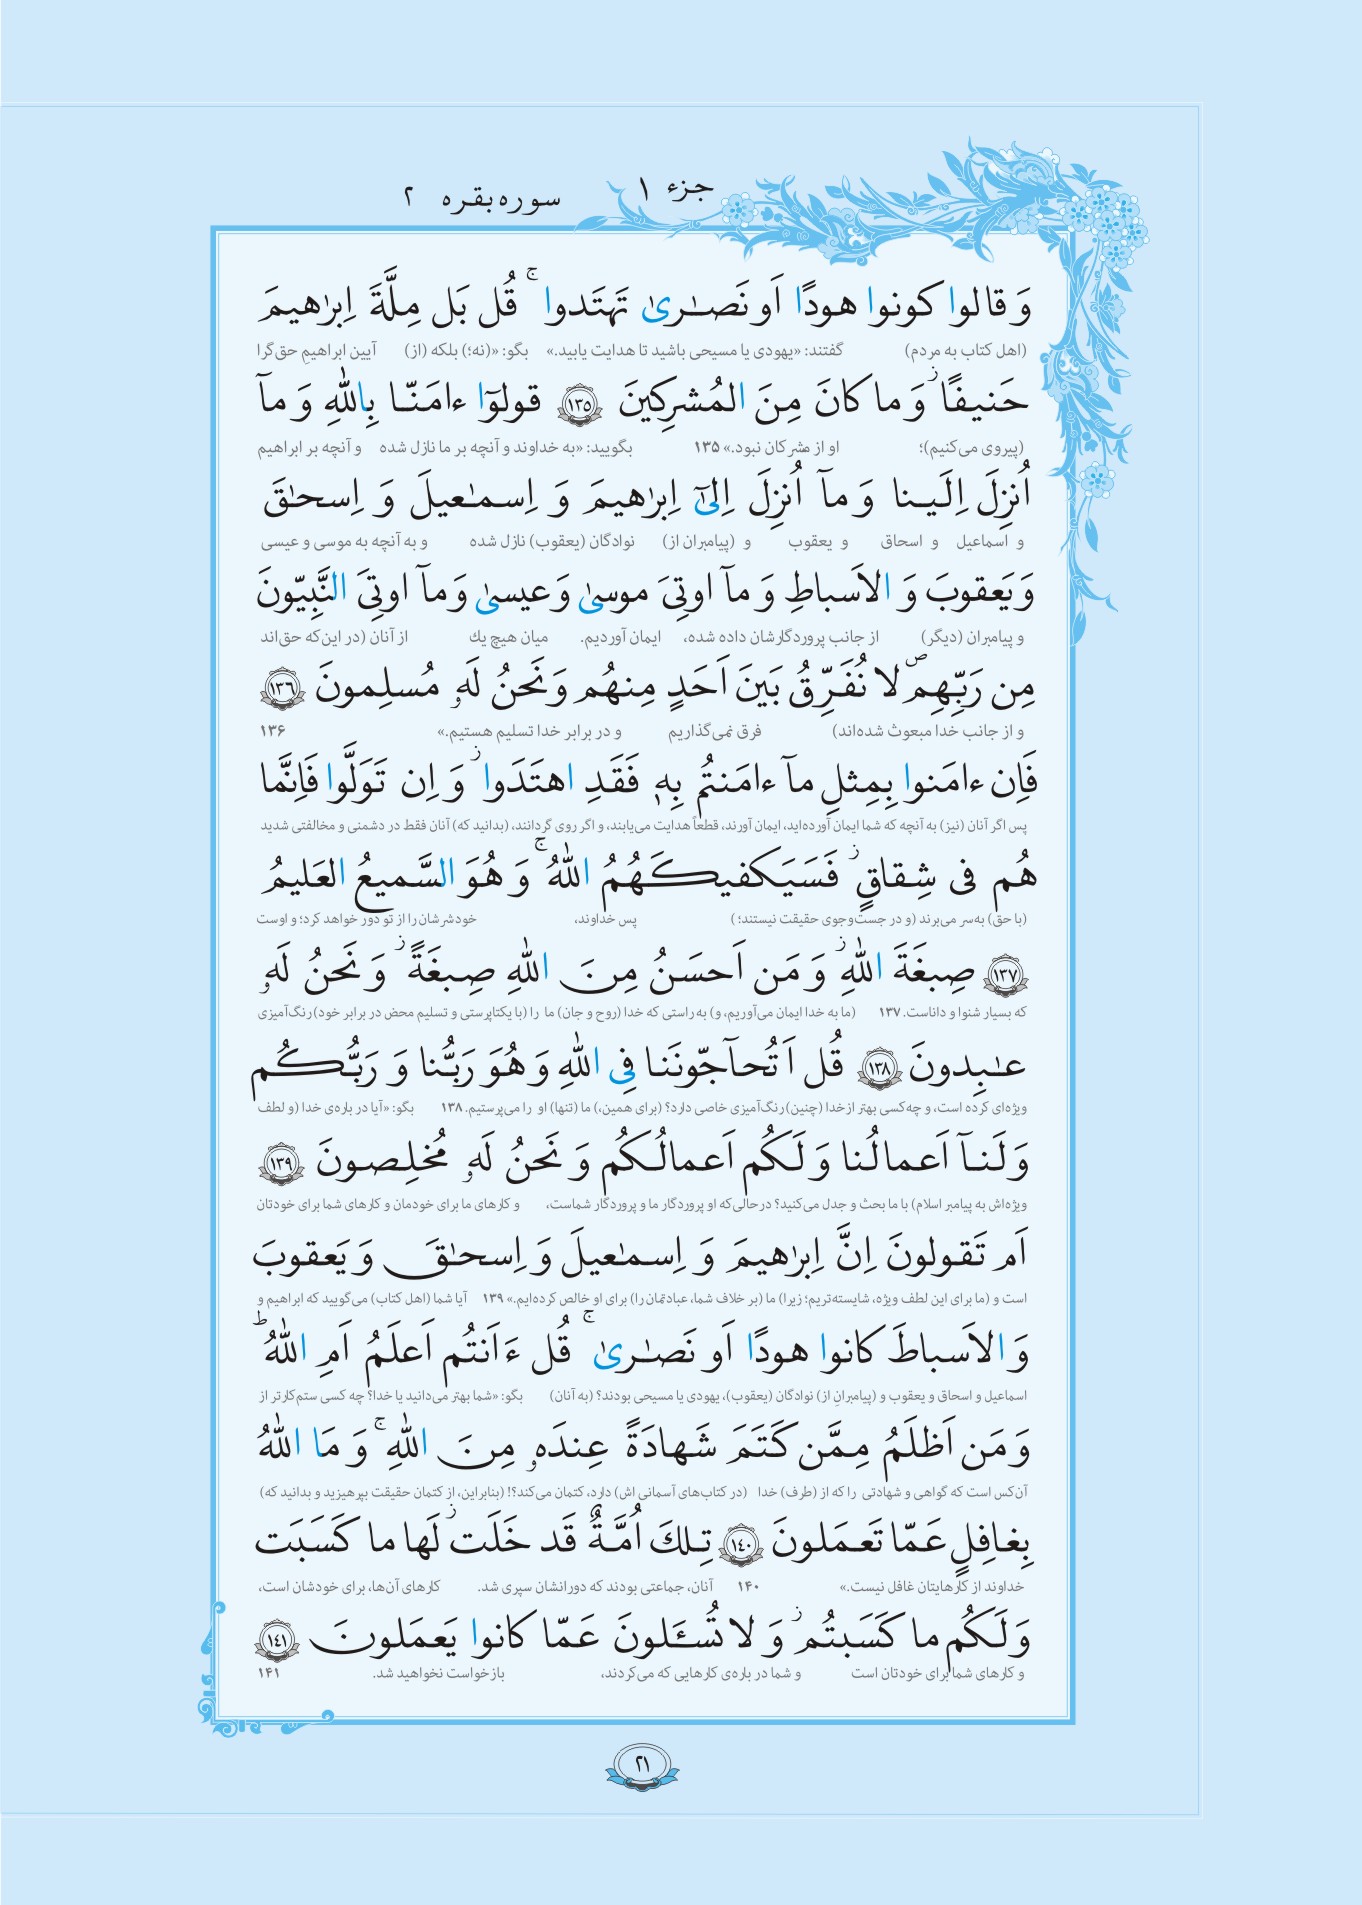 جزء ۱
سوره بقره ۲
وَ قالوا کونوا هودًا اَو نَصـٰری تَهتَدوا ۚ قُل بَل مِلَّةَ اِبرٰهیمَ
(اهل کتاب به مردم) گفتند: «یهودی یا مسیحی باشید تا هدایت یابید.» بگو: «(نه؛) بلکه (از) آیین ابراهیمِ حق‌گرا
حَنیفًا ۖ وَ ما کانَ مِنَ المُشرِکینَ ﴿۱۳۵﴾ قولوٓا ءامَنّـا بِاللّٰهِ وَ مآ
(پیروی می‌کنیم)؛ او از مشرکان نبود.» ۱۳۵ بگویید: «به خداوند و آنچه بر ما نازل شده و آنچه بر ابراهیم
اُنزِلَ اِلَیـنا وَ مآ اُنزِلَ اِلیٰٓ اِبرٰهیمَ وَ اِسمـٰعیلَ وَ اِسحـٰقَ
و اسماعیل و اسحاق و یعقوب و (پیامبران از) نوادگان (یعقوب) نازل شده و به آنچه به موسی و عیسی
وَ یَعقوبَ وَ الاَسباطِ وَ مآ اوتِیَ موسیٰ وَ عیسیٰ وَ مآ اوتِیَ النَّبِیّونَ
و پیامبران (دیگر) از جانب پروردگارشان داده شده، ایمان آوردیم. میان هیچ یك از آنان (در این‌که حق‌اند
مِن رَبِّهِم ۖ لا نُفَرِّقُ بَینَ اَحَدٍ مِنهُم وَ نَحنُ لَهٗ مُسلِمونَ ﴿۱۳۶﴾
و از جانب خدا مبعوث شده‌اند) فرق نمی‌گذاریم و در برابر خدا تسلیم هستیم.» ۱۳۶
فَاِن ءامَنوا بِمِثلِ مآ ءامَنتُم بِهٖ فَقَدِ اهتَدَوا ۖ وَ اِن تَوَلَّوا فَاِنَّما
پس اگر آنان (نیز) به آنچه که شما ایمان آورده‌اید، ایمان آورند، قطعاً هدایت می‌یابند، و اگر روی گردانند، (بدانید که) آنان فقط در دشمنی و مخالفتی شدید
هُم فی شِقاقٍ ۖ فَسَیَکفیـکَـهُمُ اللّٰهُ ۚ وَ هُوَ السَّمیعُ العَلیمُ
(با حق) به‌سر می‌برند (و در جست‌وجوی حقیقت نیستند؛) پس خداوند، خودشرشان را از تو دور خواهد کرد؛ و اوست
﴿۱۳۷﴾ صِبغَةَ اللّٰهِ ۖ وَ مَن اَحسَنُ مِنَ اللّٰهِ صِبغَةً ۖ وَ نَحنُ لَهٗ
که بسیار شنوا و داناست. ۱۳۷ (ما به خدا ایمان می‌آوریم، و) به راستی که خدا (روح و جان) ما را (با یکتاپرستی و تسلیم محض در برابر خود) رنگ‌آمیزی
عـٰبِدونَ ﴿۱۳۸﴾ قُل اَتُحآجّونَنا فِی اللّٰهِ وَ هُوَ رَبُّنا وَ رَبُّـکُم
ویژه‌ای کرده است، و چه‌کسی بهتر از خدا (چنین) رنگ‌آمیزی خاصی دارد؟ (برای همین،) ما (تنها) او را می‌پرستیم. ۱۳۸ بگو: «آیا در باره‌ی خدا (و لطف
وَ لَنـآ اَعمالُنا وَ لَکُم اَعمالُـکُم وَ نَحنُ لَهٗ مُخلِصونَ ﴿۱۳۹﴾
ویژه‌اش به پیامبر اسلام) با ما بحث و جدل می‌کنید؟ درحالی‌که او پروردگار ما و پروردگار شماست، و کارهای ما برای خودمان و کارهای شما برای خودتان
اَم تَقولونَ اِنَّ اِبرٰهیمَ وَ اِسمـٰعیلَ وَ اِسحـٰقَ وَ یَعقوبَ
است و (ما برای این لطف ویژه، شایسته‌تریم؛ زیرا) ما (بر خلاف شما، عبادتمان را) برای او خالص کرده‌ایم.» ۱۳۹ آیا شما (اهل کتاب) می‌گویید که ابراهیم و
وَ الاَسباطَ کانوا هودًا اَو نَصـٰریٰ ۚ قُل ءَاَنتُم اَعلَمُ اَمِ اللّٰهُ ۗ
اسماعیل و اسحاق و یعقوب و (پیامبرانِ از) نوادگان (یعقوب)، یهودی یا مسیحی بودند؟ (به آنان) بگو: «شما بهتر می‌دانید یا خدا؟ چه کسی ستم‌کارتر از
وَ مَن اَظلَمُ مِمَّن کَتَمَ شَهادَةً عِندَهٗ مِنَ اللّٰهِ ۚ وَ مَا اللّٰهُ
آن‌کس است که گواهی و شهادتی را که از (طرف) خدا (در کتاب‌های آسمانی اش) دارد، کتمان می‌کند؟! (بنابراین، از کتمان حقیقت بپرهیزید و بدانید که)
بِغافِلٍ عَمّا تَعمَلونَ ﴿۱۴۰﴾ تِلكَ اُمَّةٌ قَد خَلَت ۖ لَها ما کَسَبَت
خداوند از کارهایتان غافل نیست.» ۱۴۰ آنان، جماعتی بودند که دورانشان سپری شد. کارهای آن‌ها، برای خودشان است،
وَ لَکُم ما کَسَبتُم ۖ وَ لا تُسـَٔلونَ عَمّا کانوا یَعمَلونَ ﴿۱۴۱﴾
و کارهای شما برای خودتان است و شما در باره‌ی کارهایی که می‌کردند، بازخواست نخواهید شد. ۱۴۱
۲۱